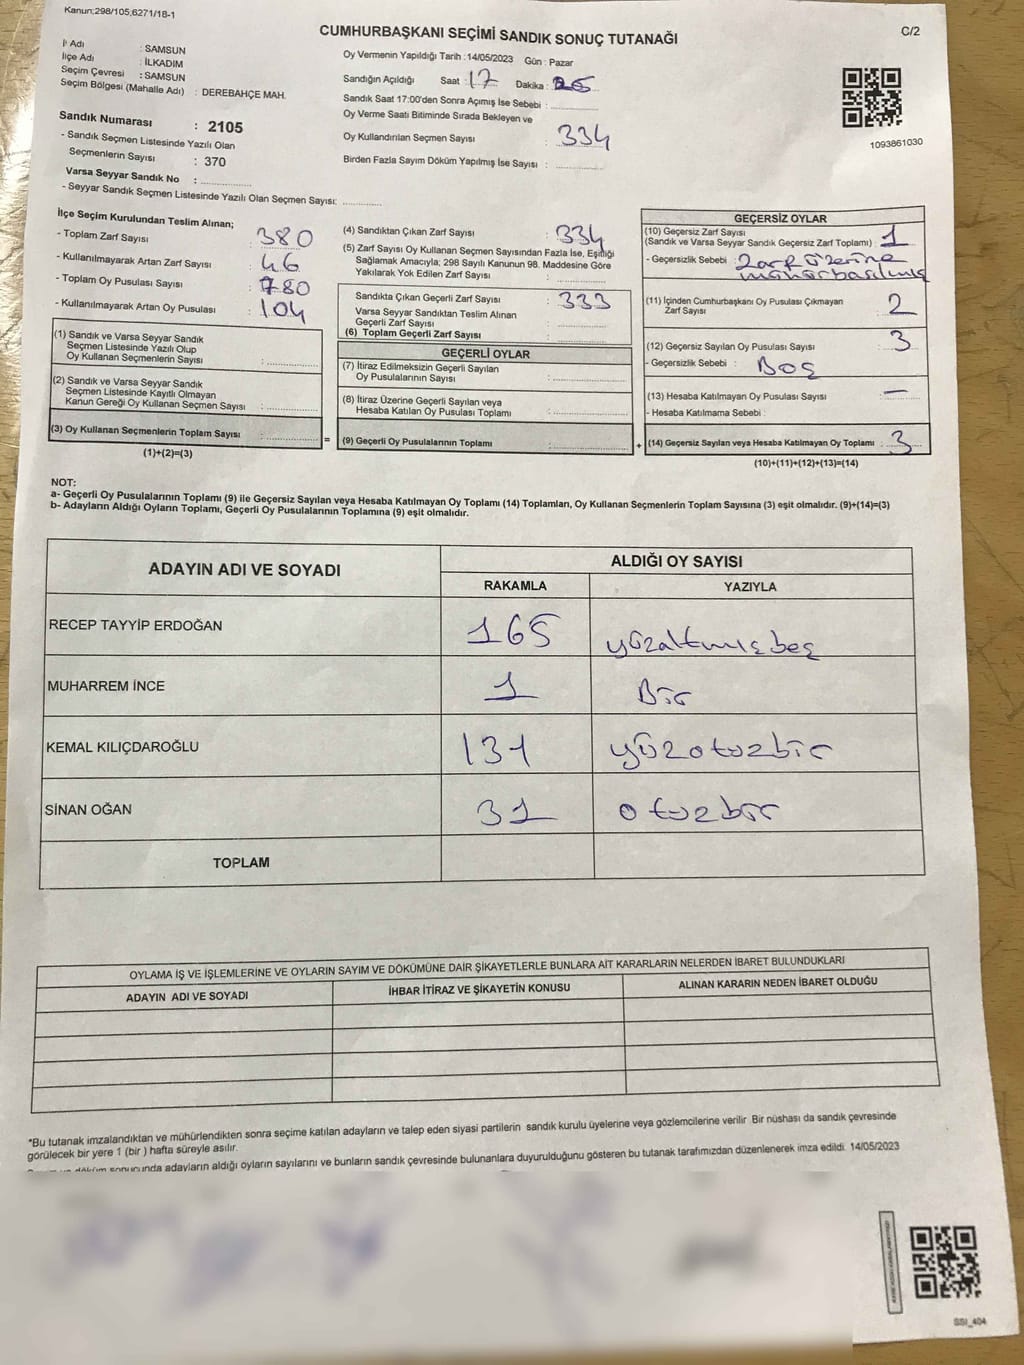 Kanun;298/105,6271/18-1
CUMHURBAŞKANI SEÇİMİ SANDIK SONUÇ TUTANAĞI
C/2
İl Adı : SAMSUN
İlçe Adı : İLKADIM
Seçim Çevresi : SAMSUN
Seçim Bölgesi (Mahalle Adı) : DEREBAHÇE MAH.
Sandık Numarası : 2105
- Sandık Seçmen Listesinde Yazılı Olan
Seçmenlerin Sayısı : 370
Varsa Seyyar Sandık No :
- Seyyar Sandık Seçmen Listesinde Yazılı Olan Seçmen Sayısı:
Oy Vermenin Yapıldığı Tarih : 14/05/2023 Gün : Pazar
Sandığın Açıldığı Saat : 17 Dakika :
Sandık Saat 17:00'den Sonra Açımış İse Sebebi :
Oy Verme Saati Bitiminde Sırada Bekleyen ve
Oy Kullandırılan Seçmen Sayısı : 334
Birden Fazla Sayım Döküm Yapılmış İse Sayısı :
1093861030
İlçe Seçim Kurulundan Teslim Alınan;
- Toplam Zarf Sayısı : 380
- Kullanılmayarak Artan Zarf Sayısı : 46
- Toplam Oy Pusulası Sayısı : 780
- Kullanılmayarak Artan Oy Pusulası : 104
(1) Sandık ve Varsa Seyyar Sandık
Seçmen Listesinde Yazılı Olup
Oy Kullanan Seçmenlerin Sayısı :
(2) Sandık ve Varsa Seyyar Sandık
Seçmen Listesinde Kayıtlı Olmayan
Kanun Gereği Oy Kullanan Seçmen Sayısı :
(3) Oy Kullanan Seçmenlerin Toplam Sayısı :
(1)+(2)=(3)
(4) Sandıktan Çıkan Zarf Sayısı : 334
(5) Zarf Sayısı Oy Kullanan Seçmen Sayısından Fazla İse, Eşitliği
Sağlamak Amacıyla; 298 Sayılı Kanunun 98. Maddesine Göre
Yakılarak Yok Edilen Zarf Sayısı :
Sandıkta Çıkan Geçerli Zarf Sayısı : 333
Varsa Seyyar Sandıktan Teslim Alınan
Geçerli Zarf Sayısı :
(6) Toplam Geçerli Zarf Sayısı :
GEÇERLİ OYLAR
(7) İtiraz Edilmeksizin Geçerli Sayılan
Oy Pusulalarının Sayısı :
(8) İtiraz Üzerine Geçerli Sayılan veya
Hesaba Katılan Oy Pusulası Toplamı :
= (9) Geçerli Oy Pusulalarının Toplamı :
GEÇERSİZ OYLAR
(10) Geçersiz Zarf Sayısı
(Sandık ve Varsa Seyyar Sandık Geçersiz Zarf Toplamı) : 1
- Geçersizlik Sebebi : Zarf üzerine
mühür basılmış
(11) İçinden Cumhurbaşkanı Oy Pusulası Çıkmayan
Zarf Sayısı : 2
(12) Geçersiz Sayılan Oy Pusulası Sayısı : 3
- Geçersizlik Sebebi : Boş
(13) Hesaba Katılmayan Oy Pusulası Sayısı : —
- Hesaba Katılmama Sebebi :
+ (14) Geçersiz Sayılan veya Hesaba Katılmayan Oy Toplamı : 3
(10)+(11)+(12)+(13)=(14)
NOT:
a- Geçerli Oy Pusulalarının Toplamı (9) ile Geçersiz Sayılan veya Hesaba Katılmayan Oy Toplamı (14) Toplamları, Oy Kullanan Seçmenlerin Toplam Sayısına (3) eşit olmalıdır. (9)+(14)=(3)
b- Adayların Aldığı Oyların Toplamı, Geçerli Oy Pusulalarının Toplamına (9) eşit olmalıdır.
ADAYIN ADI VE SOYADI
ALDIĞI OY SAYISI
RAKAMLA YAZIYLA
RECEP TAYYİP ERDOĞAN 165 yüzaltmışbeş
MUHARREM İNCE 1 Bir
KEMAL KILIÇDAROĞLU 131 yüzotuzbir
SİNAN OĞAN 31 otuzbir
TOPLAM
OYLAMA İŞ VE İŞLEMLERİNE VE OYLARIN SAYIM VE DÖKÜMÜNE DAİR ŞİKAYETLERLE BUNLARA AİT KARARLARIN NELERDEN İBARET BULUNDUKLARI
ADAYIN ADI VE SOYADI İHBAR İTİRAZ VE ŞİKAYETİN KONUSU ALINAN KARARIN NEDEN İBARET OLDUĞU
*Bu tutanak imzalandıktan ve mühürlendikten sonra seçime katılan adayların ve talep eden siyasi partilerin sandık kurulu üyelerine veya gözlemcilerine verilir. Bir nüshası da sandık çevresinde
görülecek bir yere 1 (bir) hafta süreyle asılır.
döküm sonucunda adayların aldığı oyların sayılarını ve bunların sandık çevresinde bulunanlara duyurulduğunu gösteren bu tutanak tarafımızdan düzenlenerek imza edildi. 14/05/2023
SSI_404